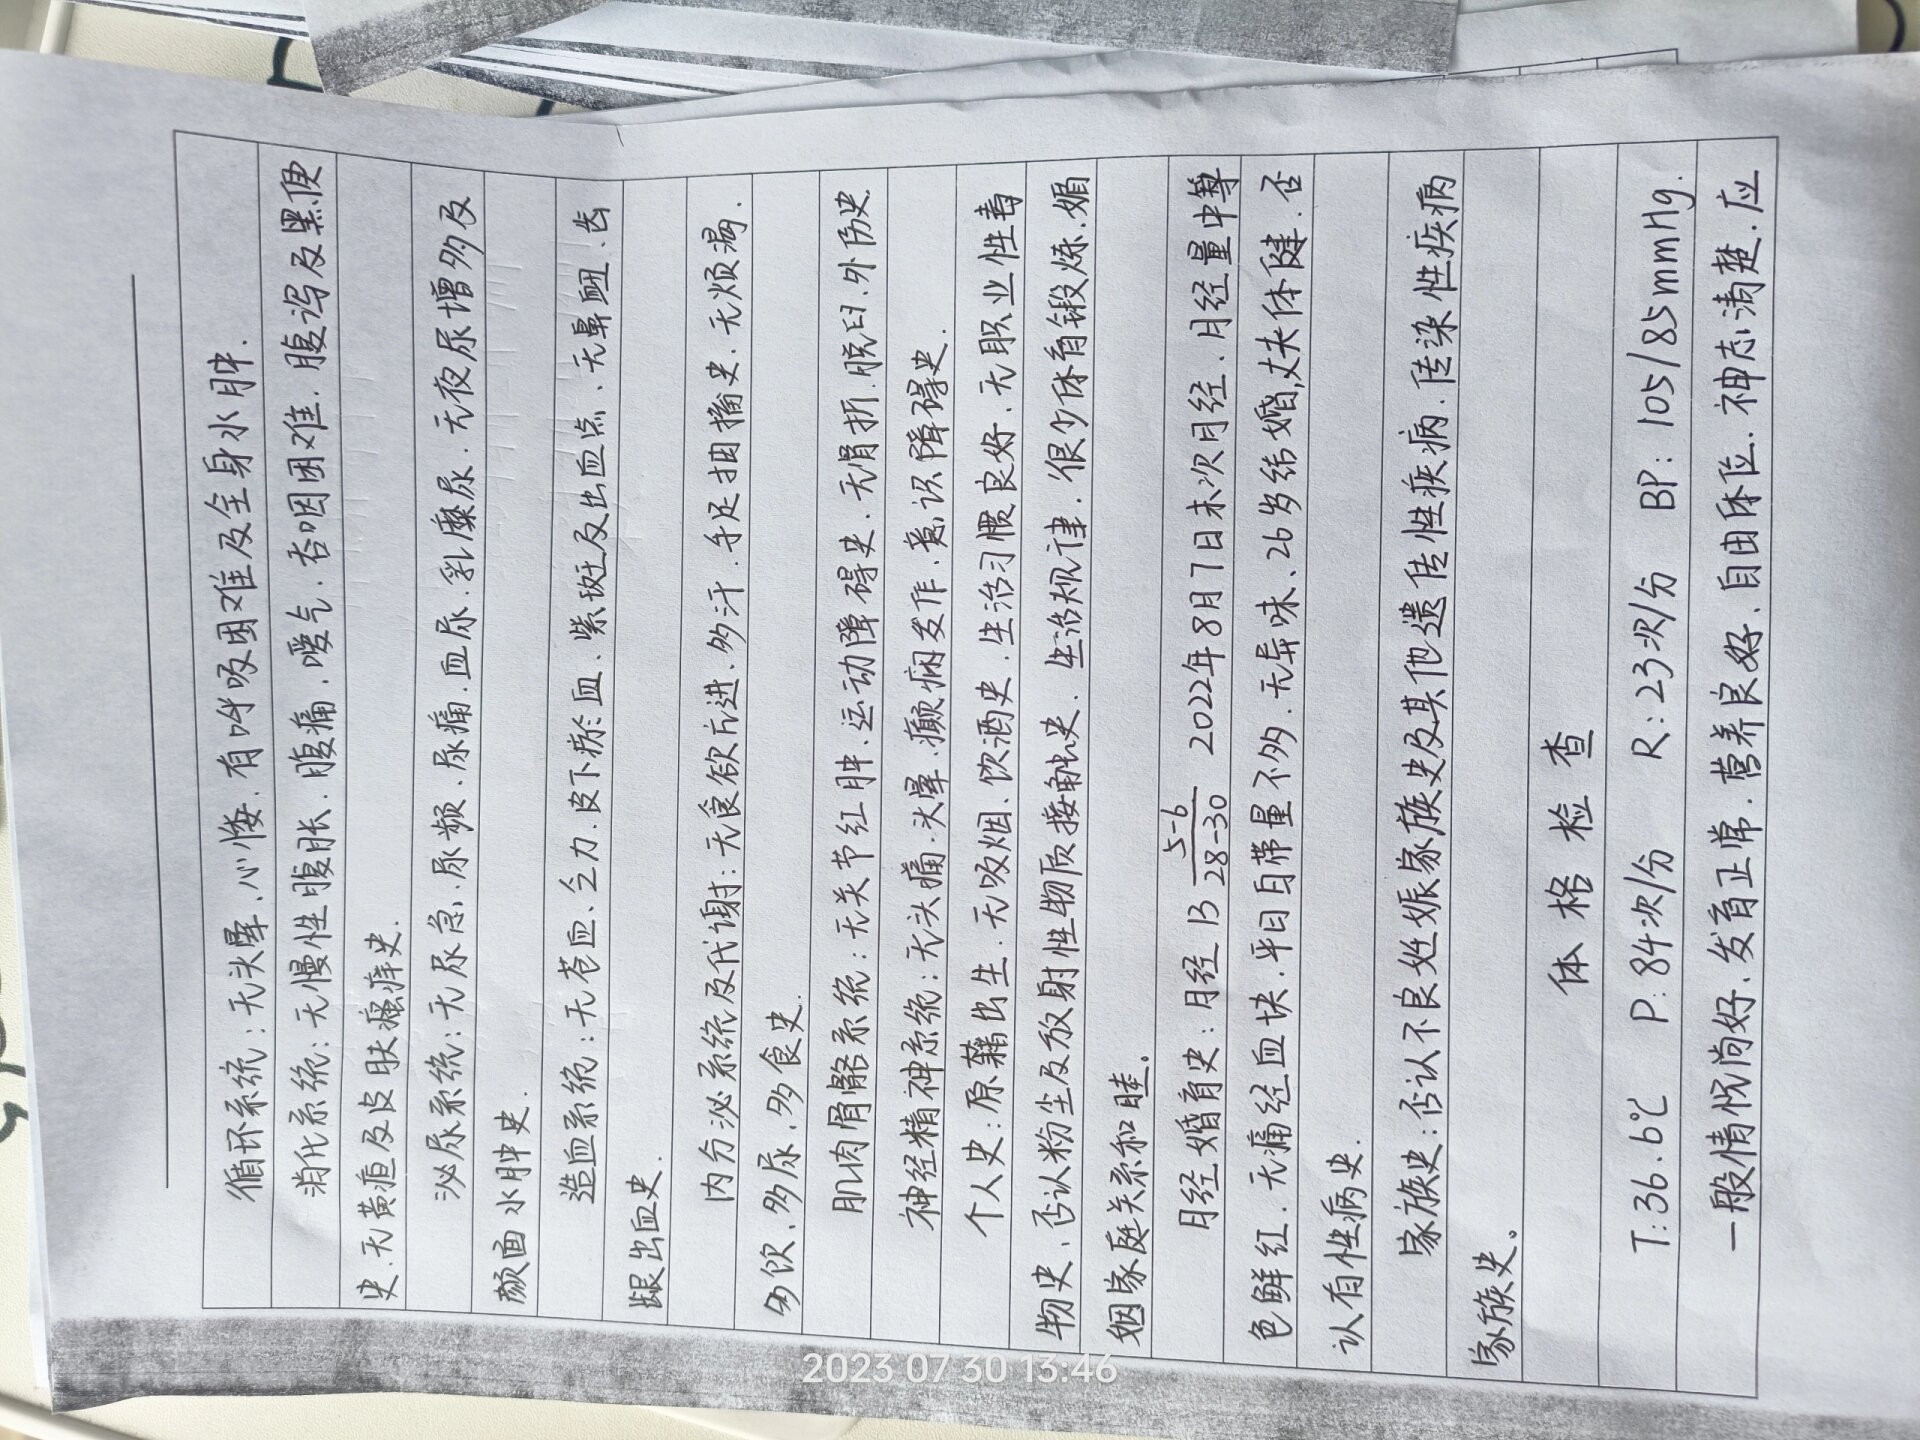 循环系统：无头晕、心悸、有呼吸困难及全身水肿.
消化系统：无慢性腹胀、腹痛、嗳气、吞咽困难、腹泻及黑便
史、无黄疸及皮肤瘙痒史.
泌尿系统：无尿急、尿频、尿痛、血尿、乳糜尿、无夜尿增多及
颜面水肿史.
造血系统：无苍白、乏力、皮下瘀血、紫斑及出血点、无鼻衄、齿
龈出血史.
内分泌系统及代谢：无食欲亢进、多汗、手足抽搐史、无烦渴、
多饮、多尿、多食史.
肌肉骨骼系统：无关节红肿、运动障碍史、无骨折、脱臼、外伤史.
神经精神系统：无头痛、头晕、癫痫发作、意识障碍史.
个人史：原籍出生、无吸烟、饮酒史、生活习惯良好、无职业性毒
物史、否认粉尘及放射性物质接触史、生活规律、很少体育锻炼、婚
姻家庭关系和睦。
月经婚育史：月经 13 5-6/28-30 2022年8月7日末次月经、月经量中等
色鲜红、无痛经血块、平日白带量不多、无异味、26岁结婚,丈夫体健、否
认有性病史.
家族史：否认不良妊娠家族史及其他遗传性疾病、传染性疾病
家族史。
体格检查
T:36.6℃ P:84次/分 R:23次/分 BP:105/85mmHg.
一般情况尚好、发育正常、营养良好、自由体位、神志清楚、应
2023 07 30 13:46